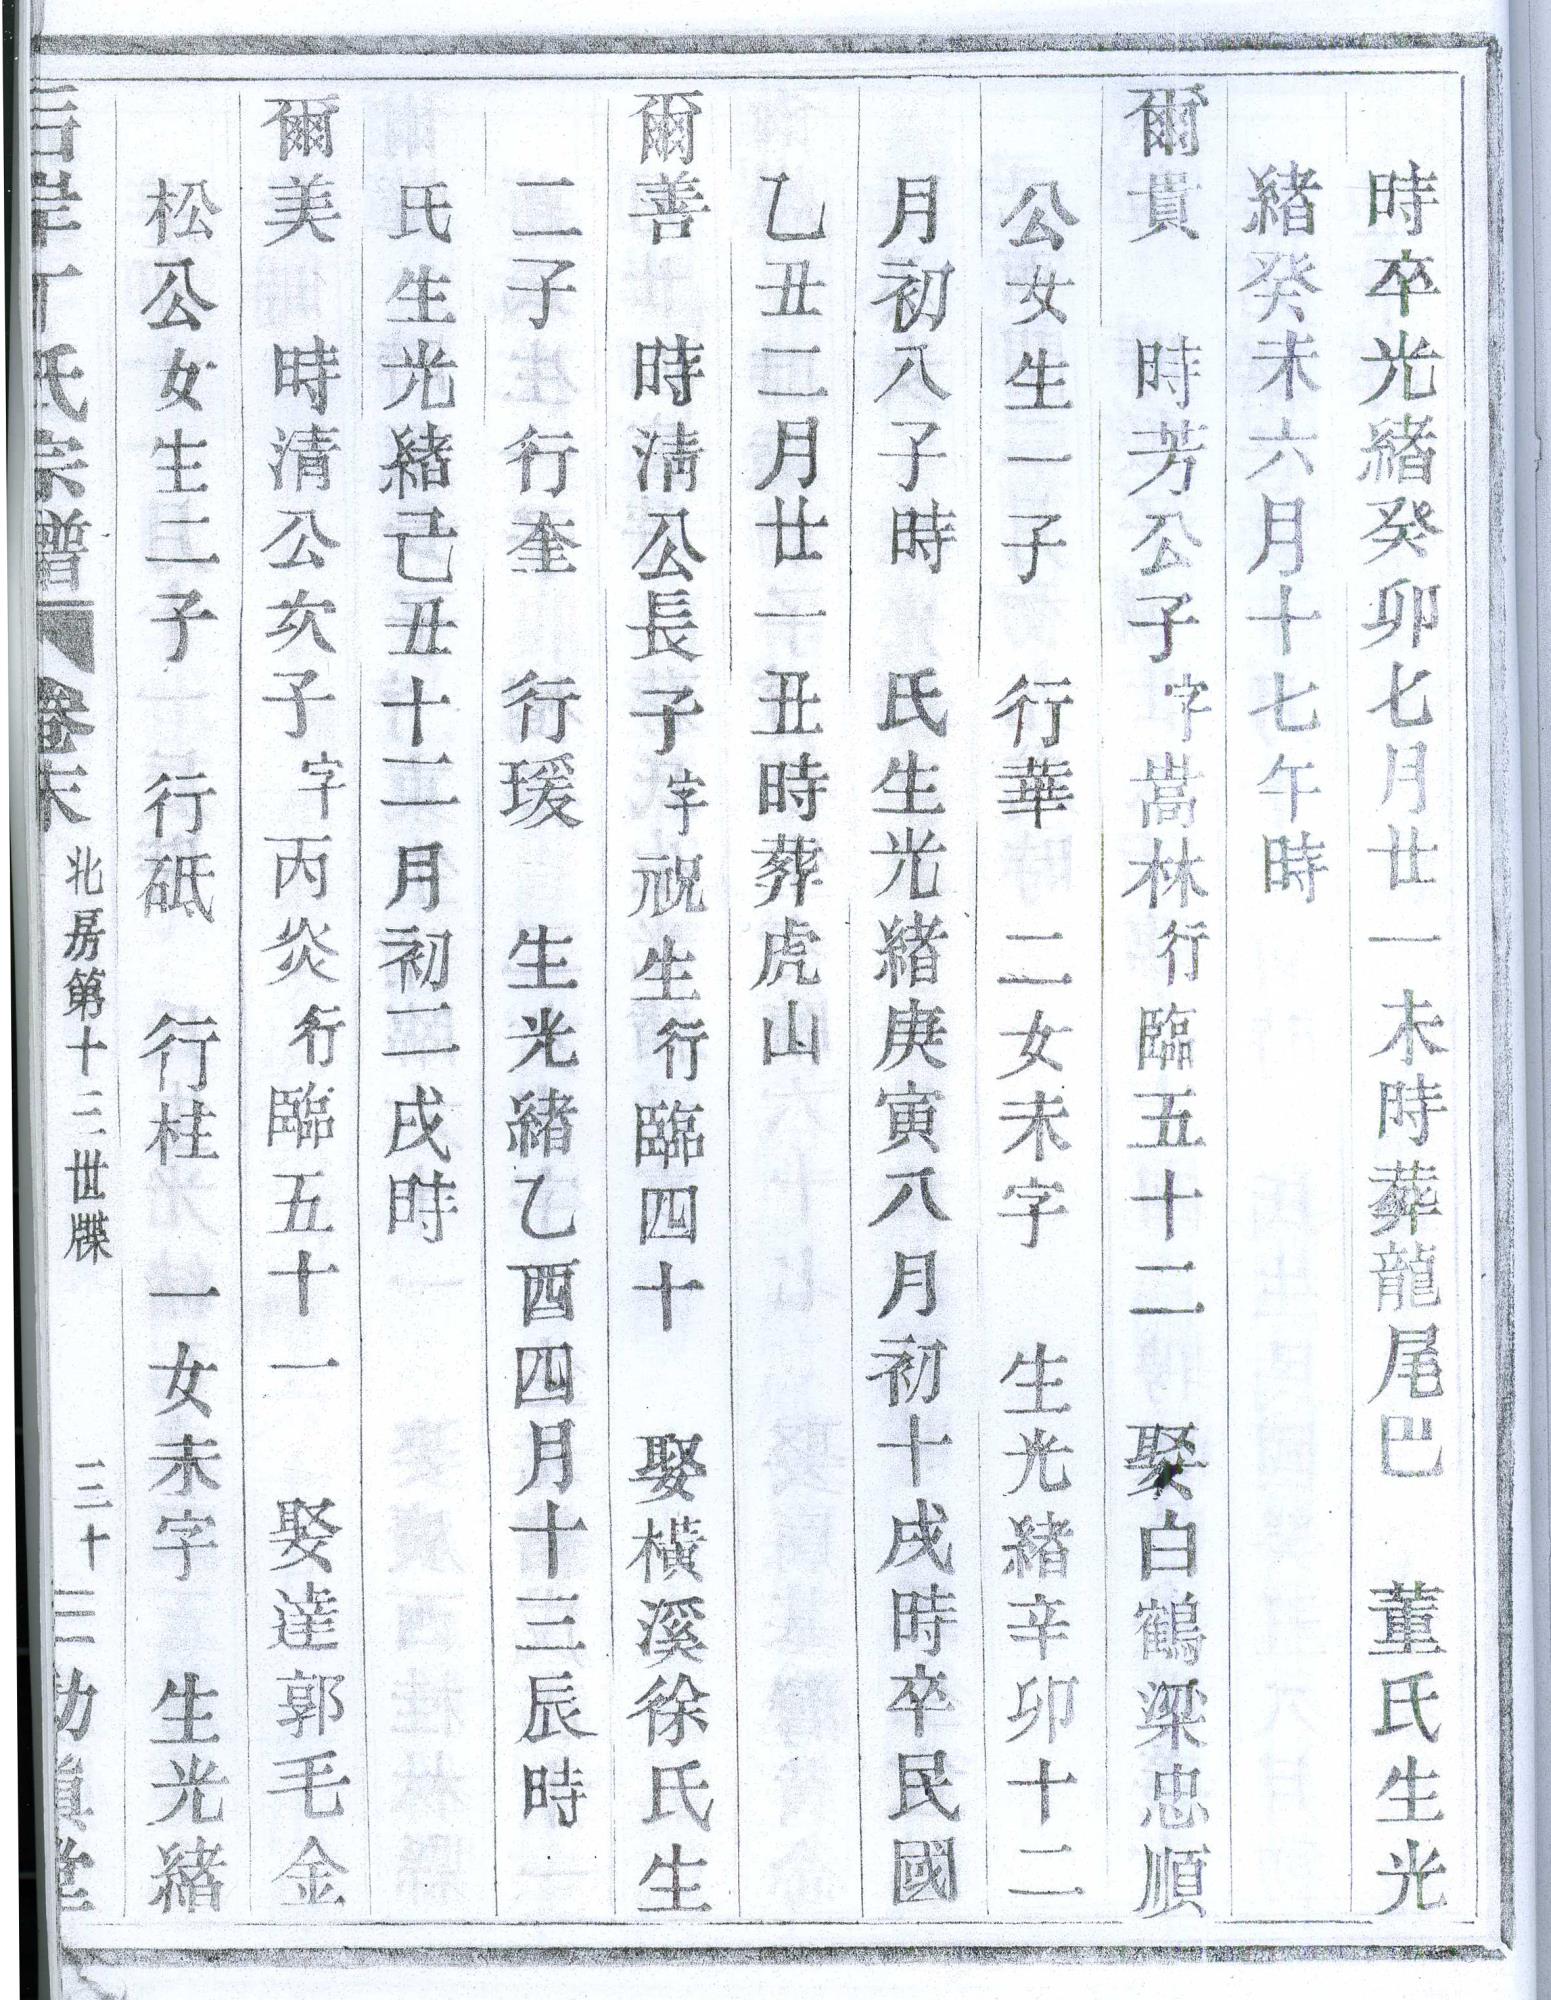 時卒光緒癸卯七月廿一未時葬龍尾巴　董氏生光
緒癸未六月十七午時
爾貫　時芳公子字嵩林行臨五十二　娶白鶴梁忠順
公女生一子　行華　二女未字　生光緒辛卯十二
月初八子時　氏生光緒庚寅八月初十戌時卒民國
乙丑二月廿一丑時葬虎山
爾善　時淸公長子字祝生行臨四十　娶橫溪徐氏生
二子　行奎　行瑗　生光緒乙酉四月十三辰時
氏生光緒己丑十二月初二戌時
爾美　時清公次子字丙炎行臨五十一　娶達郭毛金
松公女生二子　行砥　行桂　一女未字　生光緒
氏宗譜　卷末　北房第十三世牒　三十三